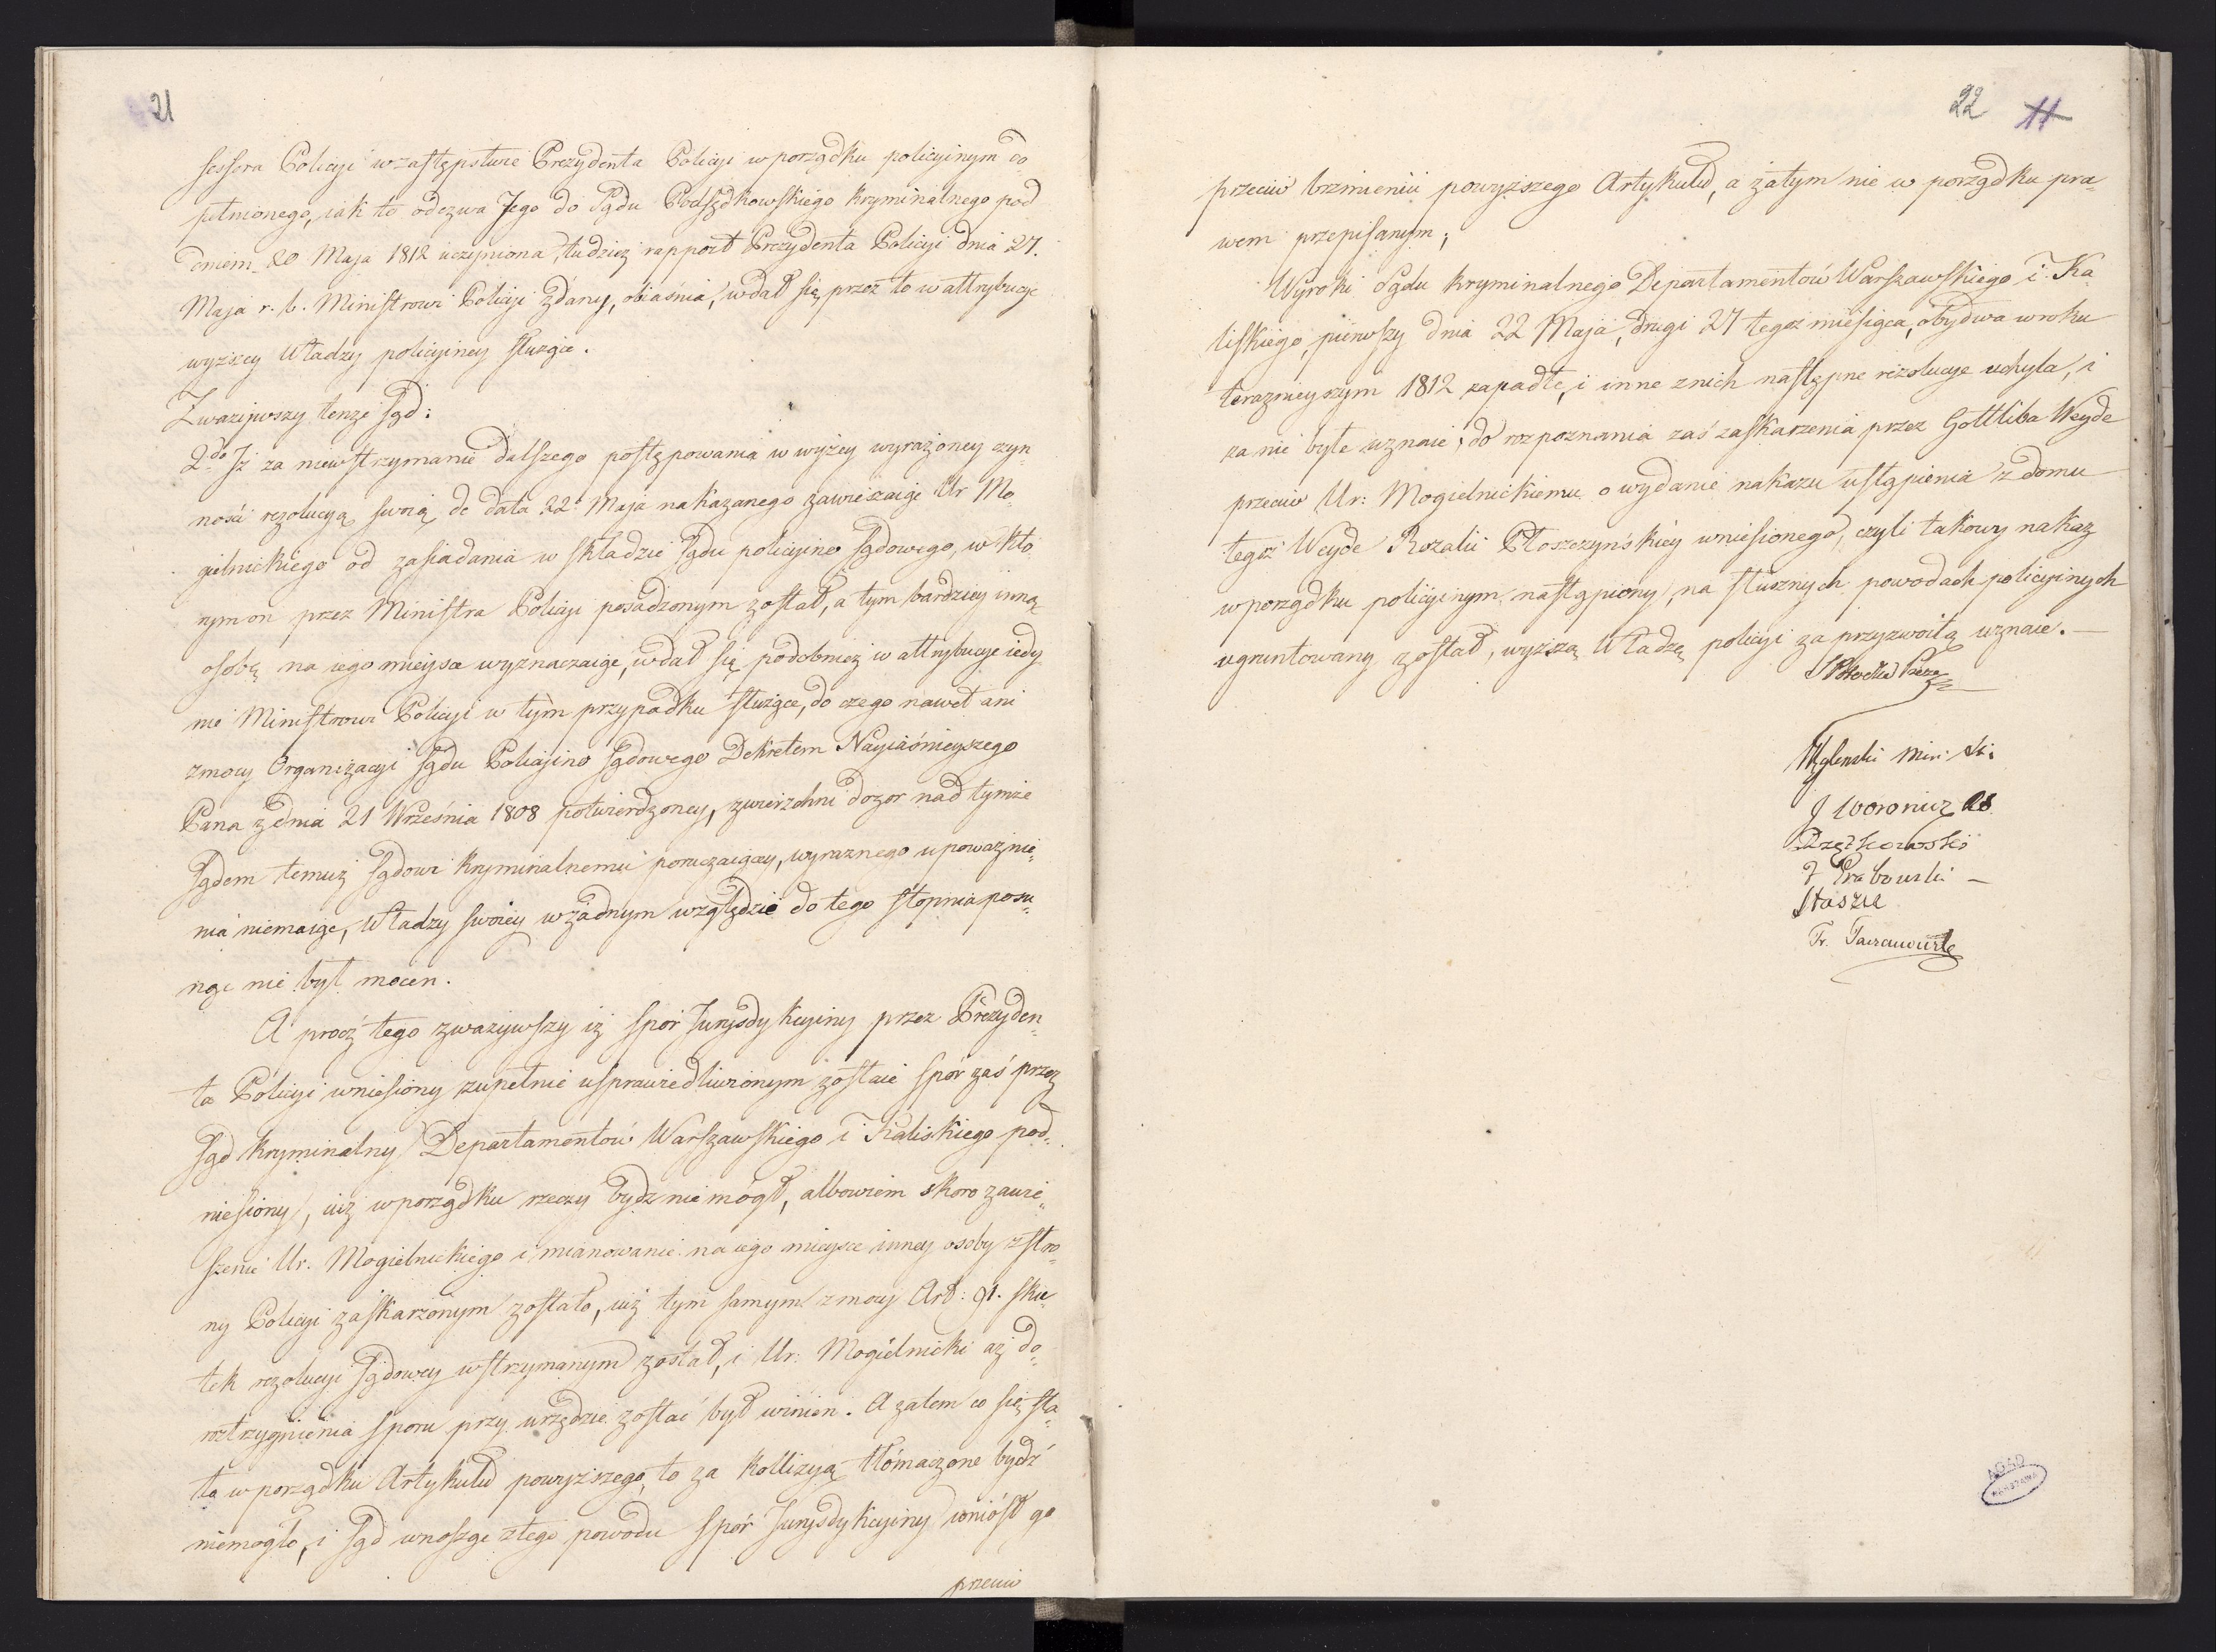 21
sessora Policyi w zastępstwie Prezydenta Policyi w porządku policyinym do„
pełnionego, iak to odezwa Jego do Sądu Podsędkowskiego kryminalnego pod
dniem 20 Maja 1812 uczyniona, tudzież rapport Prezydenta Policyi dnia 27.
Maja r. b. Ministrowi Policyi zdany, obiaśnia, wdał się przez to w attrybucye
wyższey Władzy policyiney służące.
Zważywszy tenże sąd:
2do Iż za niewstrzymanie dalszego postępowania w wyżey wyrażoney czyn„
ności rezolucyą swoią de dato 22 Maja nakazanego zawieszaiąc Ur Mo„
gielnickiego od zasiadania w składzie sądu policyino sądowego, w któ„
rym on przez Ministra Policyi posadzonym został, a tym bardziey inną
osobę na iego mieysce wyznaczaiąc, wdał się podobnież w attrybucye iedy„
nie Ministrowi Policyi w tym przypadku służące, do czego nawet ani
z mocy Organizacyi sądu Policyino sądowego Dekretem Nayiaśnieyszego
Pana z dnia 21 Września 1808 potwierdzoney, zwierzchni dozor nad tymże
sądem temuż sądowi kryminalnemu poruczaiącey, wyraznego upoważnie„
nia niemaiąc, Władzy swoiey w żadnym względzie do tego stopnia posu„
nąć nie był mocen.
A procz tego zważywszy iż spór Jurysdykcyiny przez Prezyden„
ta Policyi wniesiony zupełnie usprawiedliwionym zostaie spór zaś przez
sąd kryminalny Departamentów Warszawskiego i Kaliskiego pod„
niesiony, iuż w porządku rzeczy bydz nie mógł, albowiem skoro zawie„
szenie Ur. Mogielnickiego i mianowanie na iego mieysce inney osoby z stro„
ny Policyi zaskarżonym zostało, iuż tym samym z mocy Art: 91. sku„
tek rezolucyi sądowey wstrzymanym został, i Ur: Mogielnicki aż do„
roztrzygnienia sporu przy urzędzie zostać był winien. A zatem co się sta„
ło w porządku Artykułu powyższego, to za kollizyą tłómaczone bydź
niemogło, i sąd wnosząc z tego powodu spór Jurysdykcyiny wniósł go
przeciw
22 11
przeciw brzmieniu powyższego Artykułu, a zatym nie w porządku pra„
wem przepisanym;
Wyroki Sądu kryminalnego Departamentów Warszawskiego i Ka„
liskiego, pierwszy dnia 22 Maja, drugi 27 tegoż miesiąca, obydwa w roku
teraznieyszym 1812 zapadłe, i inne z nich następne rezolucye uchyla, i
za nie byłe uznaie; do rozpoznania zaś zaskarzenia przez Gottliba Weyde
przeciw Ur: Mogielnickiemu o wydanie nakazu ustąpienia z domu
tegoż Weyde Rozalii Płoszczyńskiey wniesionego, czyli takowy nakaz
w porządku policyinym nastąpiony, na słusznych powodach policyinych
ugruntowany został, wyższą Władzę policyi za przyzwoitą uznaie. —
S Potocki Prezes
Węgleński Min: Ski
J Woronicz RS
F Grabowski —
Staszic